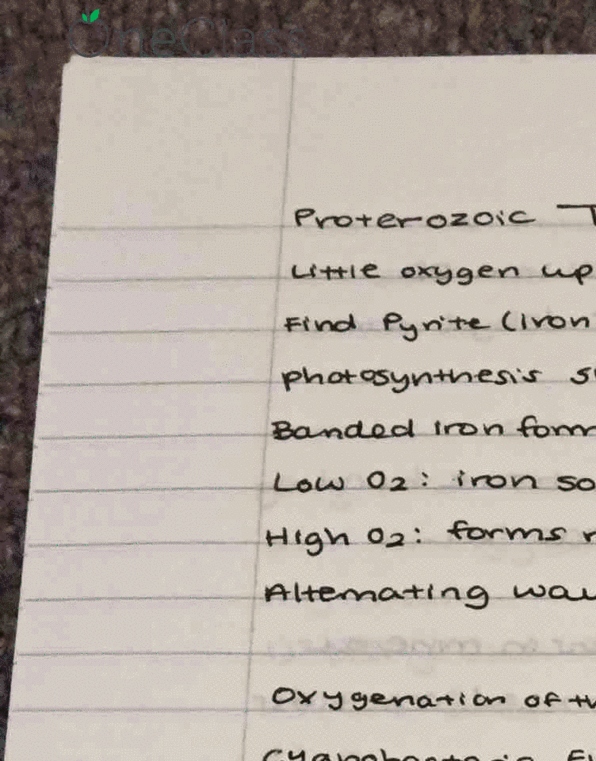 OneClass
Proterozoic
Little oxygen up
Find Pyrite (iron
photosynthesis
Banded iron form
Low O2: iron so
High O2: forms
Alternating
Oxygenation of